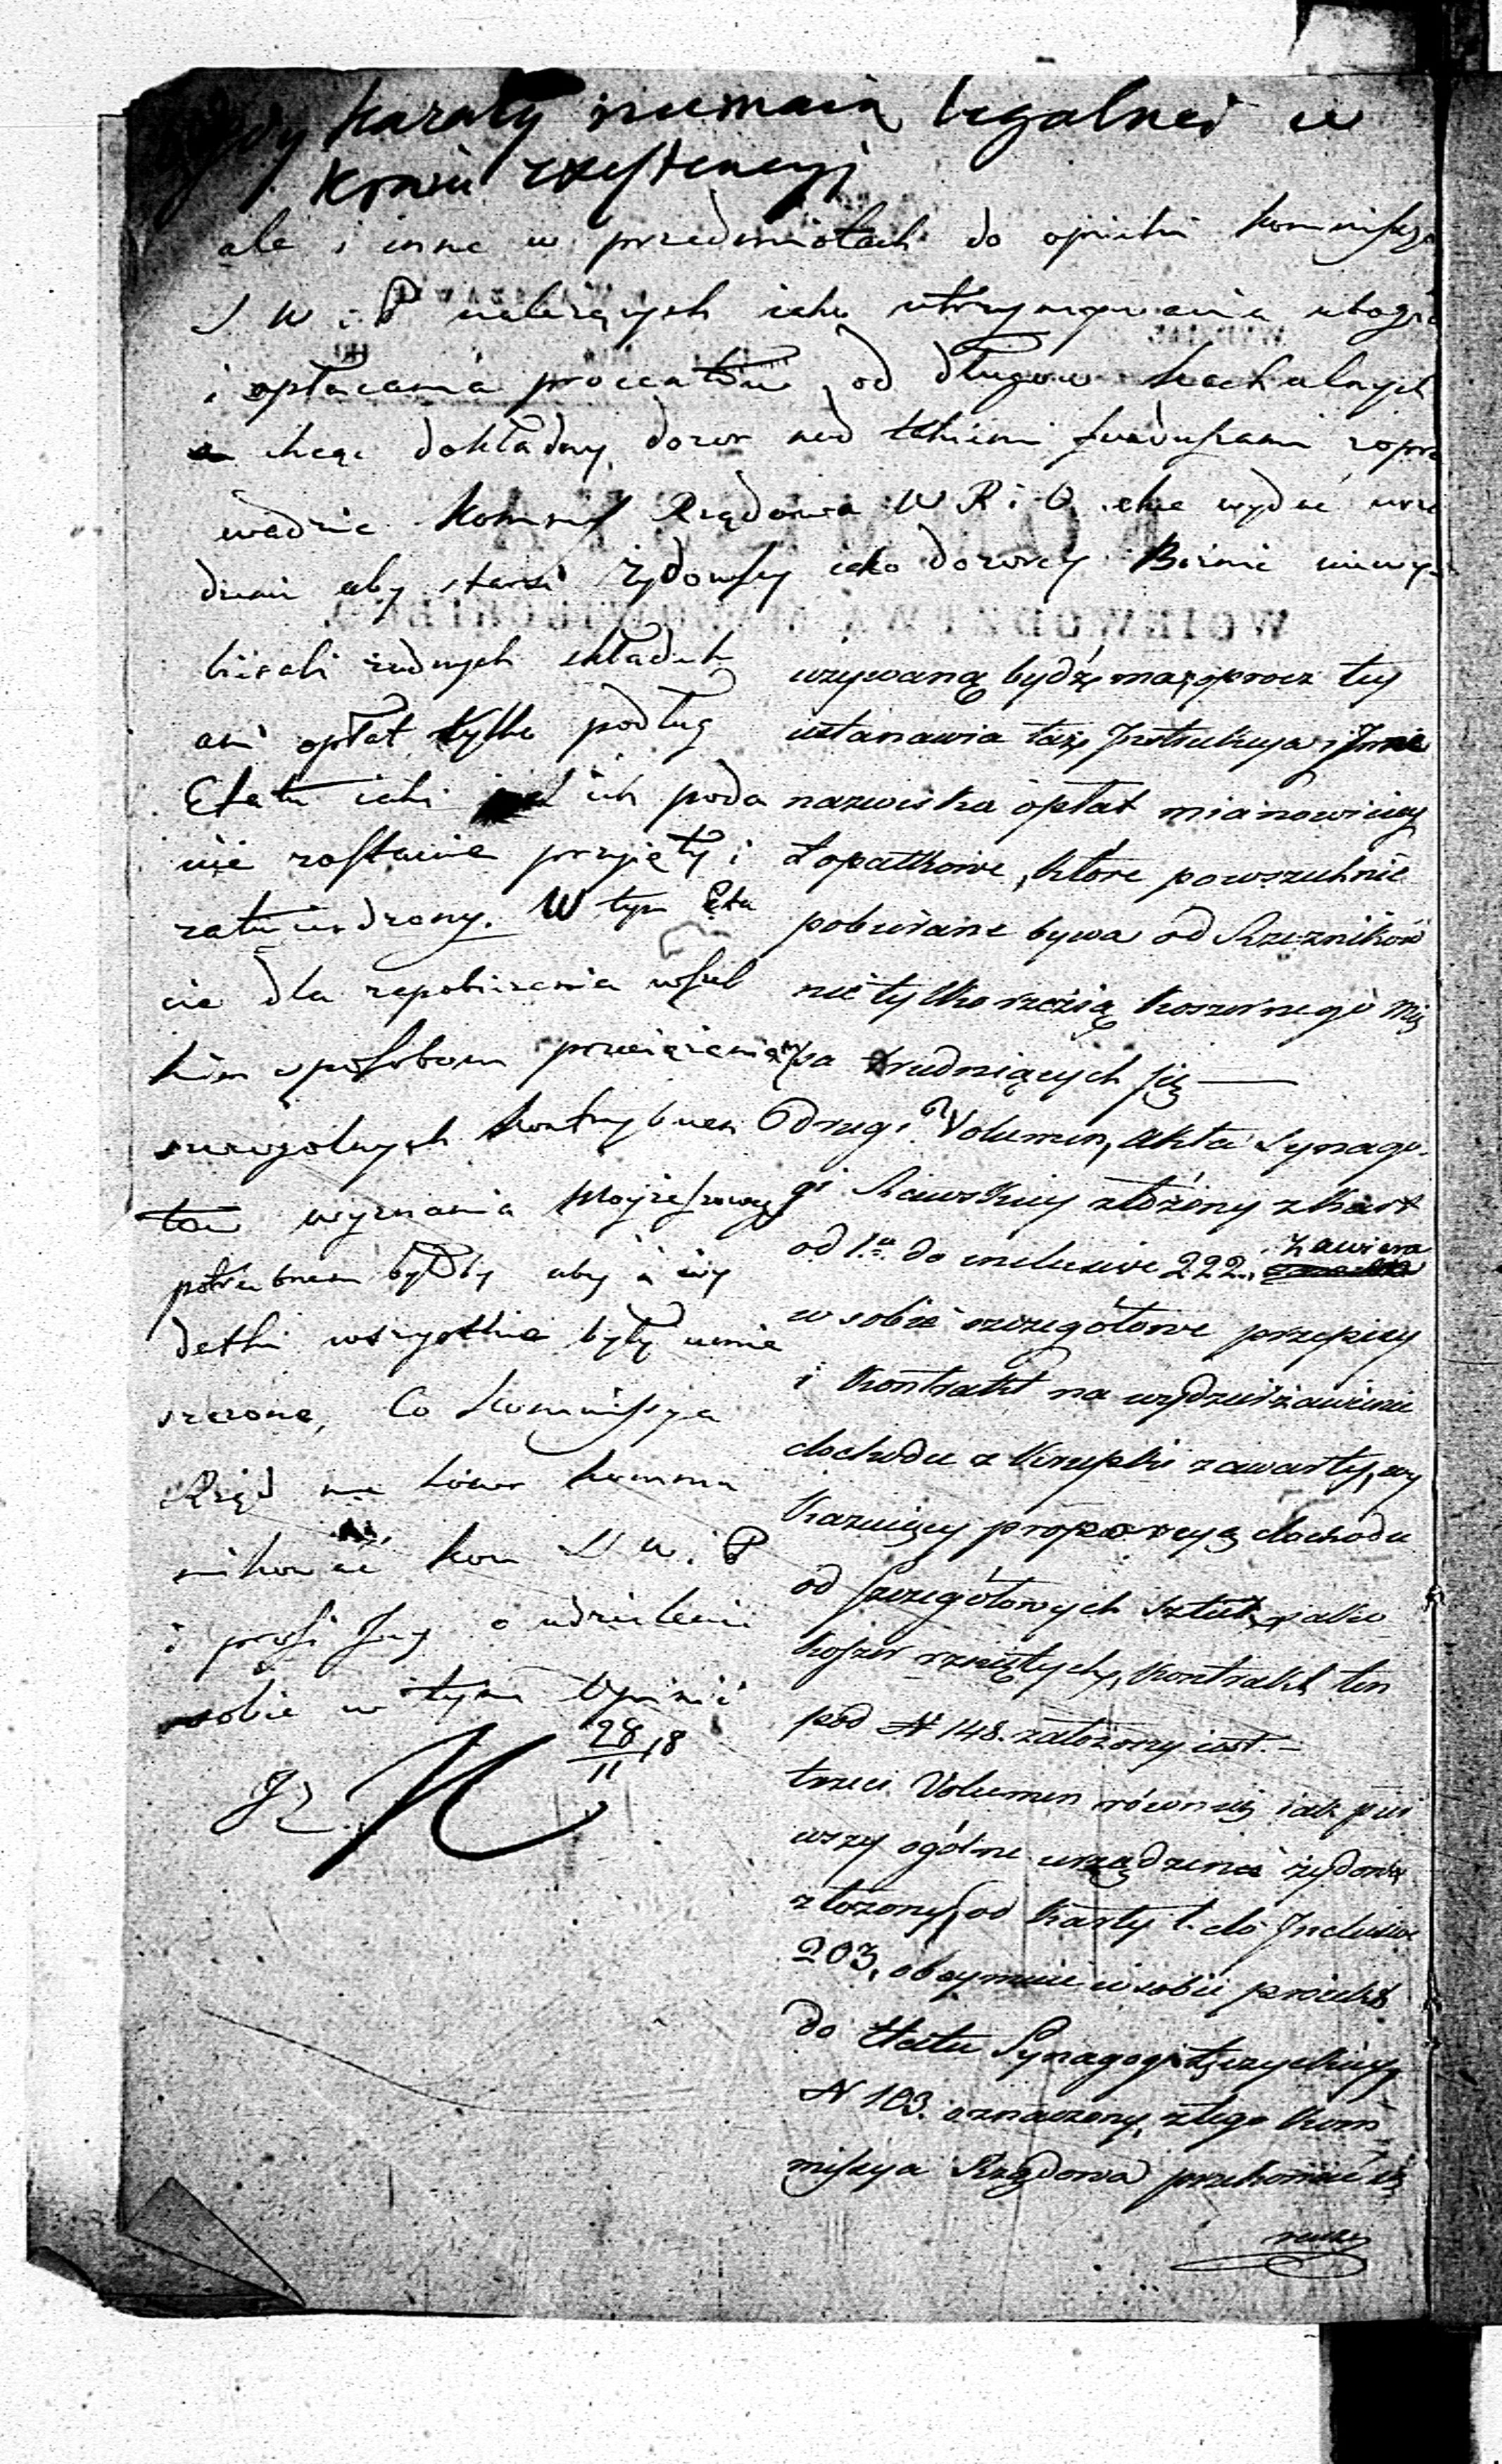 Kahały niemaią legalnei w
Kraiu exystencyi
ale i inne w przedmiotach do opieki Kommissyi
S W i P należących iako utrzymywania ubogich
i opłacania procentów od długów kachalnych
a chcąc dokładny dozor nad takiemi funduszami zapro
wadzić Kommiss Rządowa W R i O chce wydać urzą
dzenie aby starsi Żydowscy iako dozorcy Bożnic
bierali żadnych składek
ani opłat tylko podług
Etatu iaki ich poda
nie zostanie przyięty i
zatwierdzony. W tym Eta
cie dla zapobieżenia wszel
kim sposobom przeciążenia
szczególnych kontrybuen
tów wyznania Mojżeszowego
potrzebnem byłoby aby i wy
datki wszystkie były umie
szczone, Co Kommissya
Rząd ma honor kommu
nikować Kom S W i P
i prosi Jey o udzielenie
sobie w tym Opinii
28/11 18
używaną bydź ma, oprocz tey
ustanawia taż Instrukcya i Inne
nazwiska opłat mianowiciey
Łopatkowe, które powszechnie
pobierane bywa od Rzezników
nie tylko rzezią koszernego mię
sa trudniących się —
Drugi Volumen, akta Synago-
gi Rawskiey złożony z kart
od 1. do inclusive 222. zawiera
w sobie szczegółowe przepisy
i Kontrakt na wydzierżawienie
dochodu z Krupki zawarty, wy
kazuiący proporcyą dochodu
od szczegółowych sztuk, na
koszer rzniętych, Kontrakt ten
pod N 148. założony iest.—
trzeci Volumen również iak pier
wszy ogólne urządzenie żydów
złożony, od karty 1. do Inclusive
203, obeymuie w sobie proiekt
do Etatu Synagogi Łęczyckiey
N 103. oznaczony, z tego Kom-
missya Rządowa przekonać się